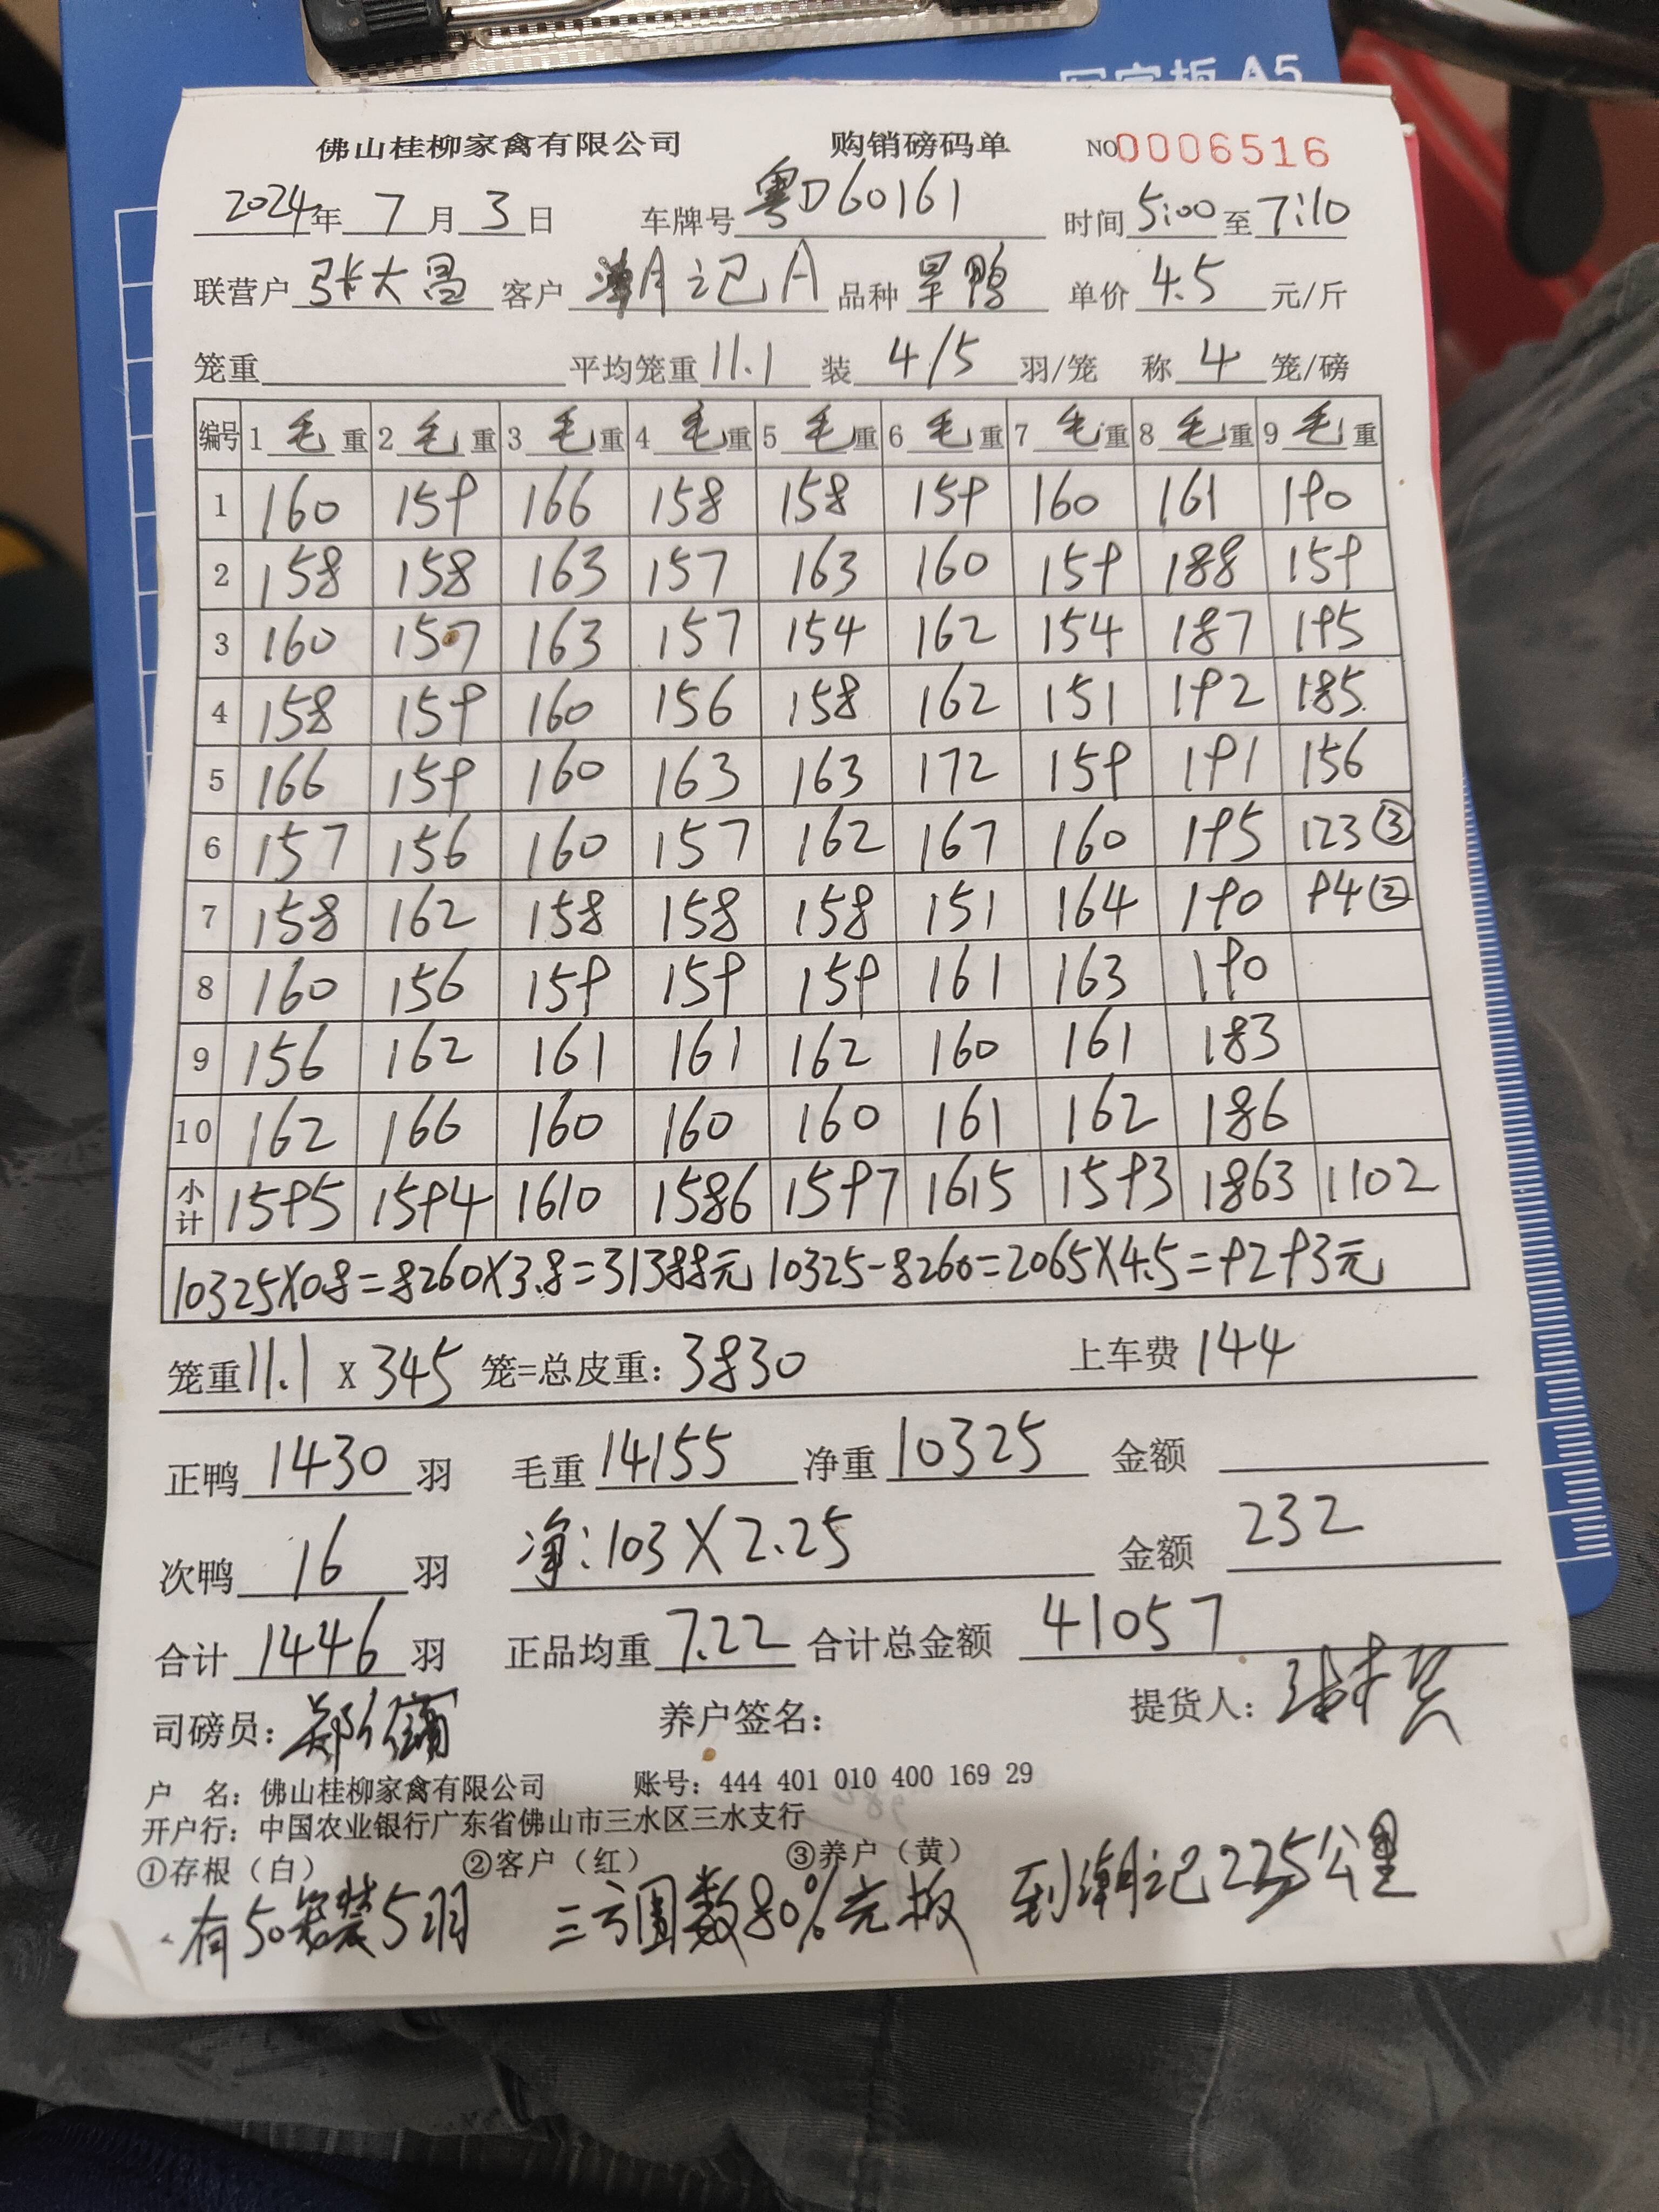 A5
佛山桂柳家禽有限公司 购销磅码单 NO0006516
2024年 7 月 3 日 车牌号 粤D60161 时间 5:00 至 7:10
联营户 张大昌 客户 潮记A 品种 旱鸭 单价 4.5 元/斤
笼重 平均笼重 11.1 装 4/5 羽/笼 称 4 笼/磅
编号 1 毛 重 2 毛 重 3 毛 重 4 毛 重 5 毛 重 6 毛 重 7 毛 重 8 毛 重 9 毛 重
1 160 159 166 158 158 159 160 161 190
2 158 158 163 157 163 160 159 188 159
3 160 157 163 157 154 162 154 187 195
4 158 159 160 156 158 162 151 192 185
5 166 159 160 163 163 172 159 191 156
6 157 156 160 157 162 167 160 195 123③
7 158 162 158 158 158 151 164 190 94②
8 160 156 159 159 159 161 163 190
9 156 162 161 161 162 160 161 183
10 162 166 160 160 160 161 162 186
小计 1595 1594 1610 1586 1597 1615 1593 1863 1102
10325X0.8=8260X3.8=31388元 10325-8260=2065X4.5=9293元
笼重 11.1 X 345 笼=总皮重: 3830 上车费 144
正鸭 1430 羽 毛重 14155 净重 10325 金额
次鸭 16 羽 净:103X2.25 金额 232
合计 1446 羽 正品均重 7.22 合计总金额 41057
司磅员: 养户签名: 提货人:
户 名: 佛山桂柳家禽有限公司 账号: 444 401 010 400 169 29
开户行: 中国农业银行广东省佛山市三水区三水支行
①存根（白） ②客户（红） ③养户（黄）
有50笼装5羽 三方围数80%光板 到潮记225公里